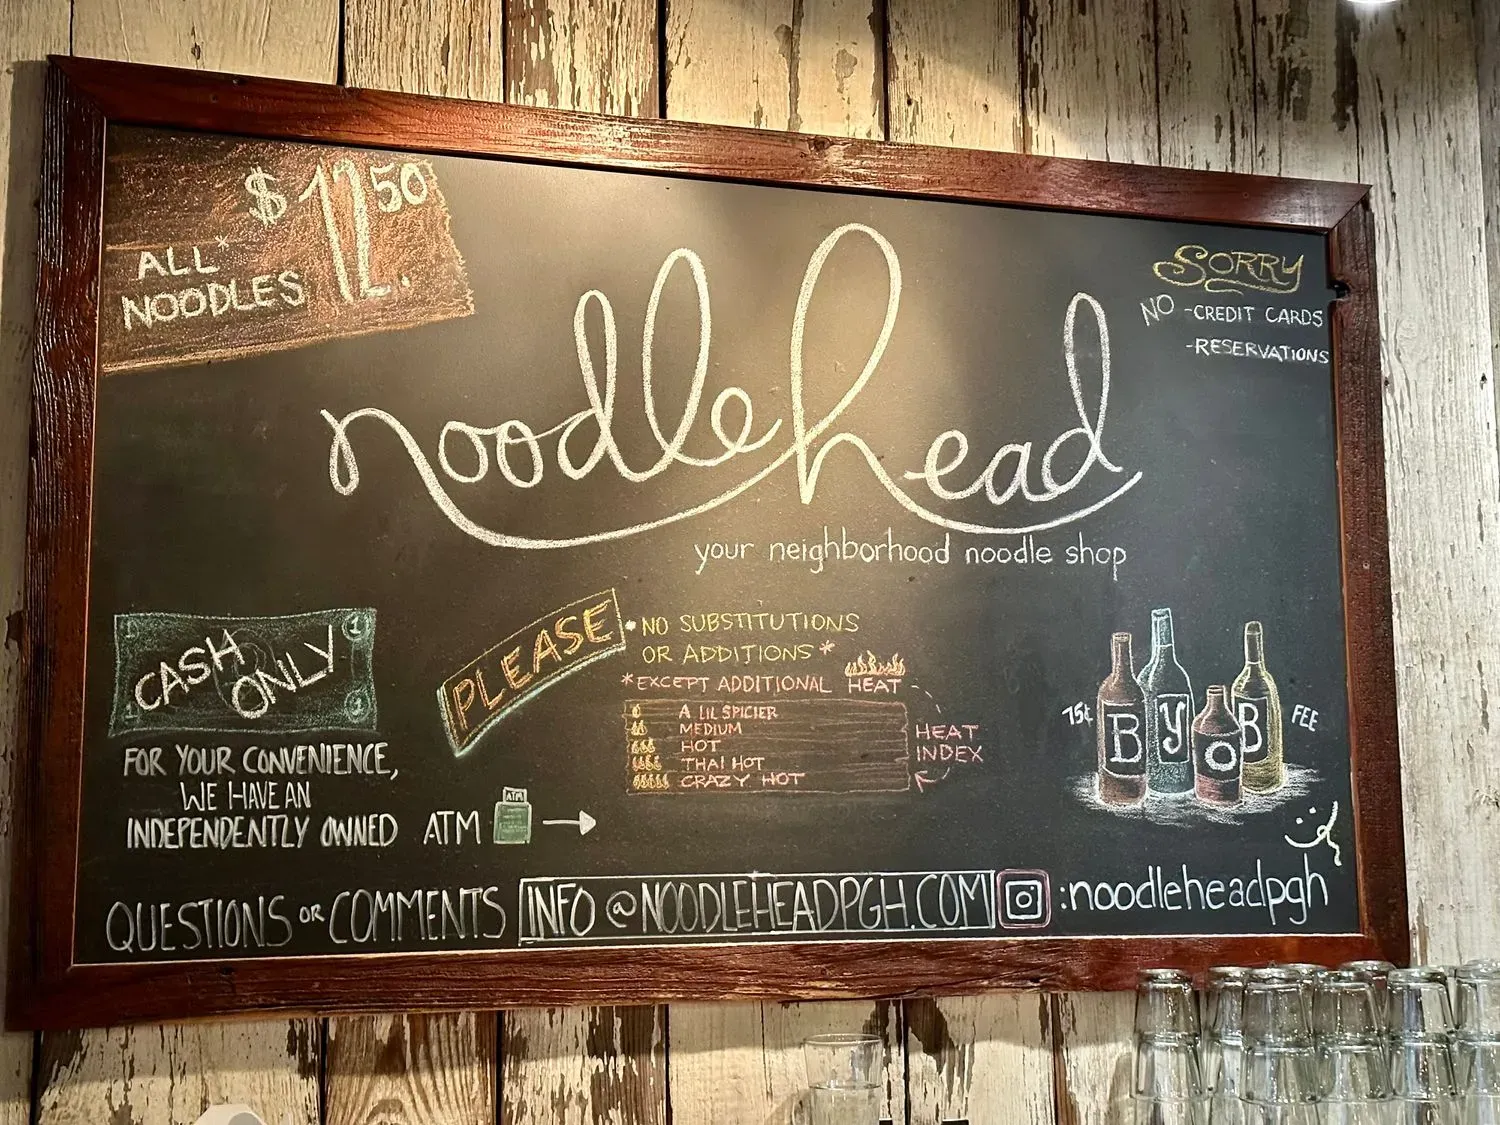 $12.50
ALL*
NOODLES
SORRY
NO -CREDIT CARDS
-RESERVATIONS
noodlehead
your neighborhood noodle shop
1 1
CASH
ONLY
1 1
FOR YOUR CONVENIENCE,
WE HAVE AN
INDEPENDENTLY OWNED ATM
ATM
PLEASE
• NO SUBSTITUTIONS
OR ADDITIONS*
*EXCEPT ADDITIONAL HEAT
A LIL SPICIER
MEDIUM
HOT
THAI HOT
CRAZY HOT
HEAT
INDEX
75¢ BYOB FEE
QUESTIONS OR COMMENTS INFO@NOODLEHEADPGH.COM :noodleheadpgh